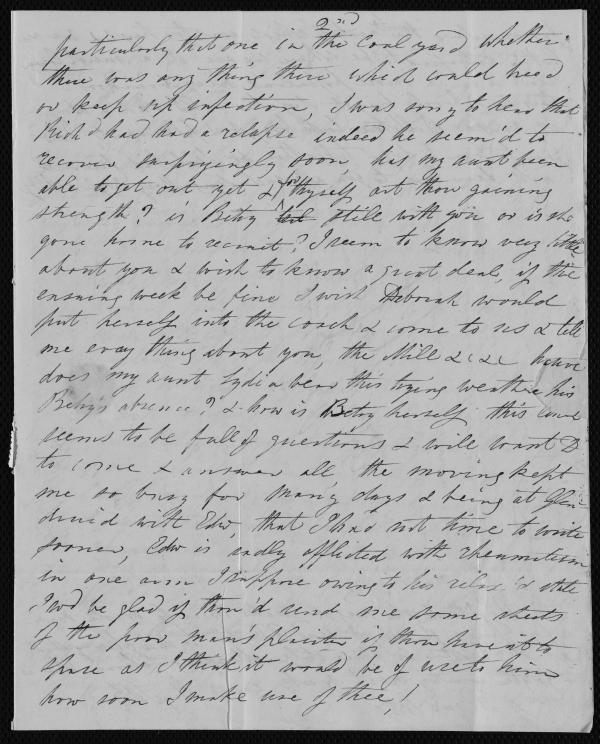 2nd
particularly that one in the Coal yard whether
there was any thing there which could breed
or keep up infection, I was sorry to hear that
Richd had had a relapse indeed he seem'd to
recover surprizingly soon, has my aunt been
able to get out yet & for thyself art thou gaining
strength? is Betsy still with you or is she
gone home to recruit? I seem to know very little
about you & wish to know a great deal, if the
ensuing week be fine I wish Deborah would
put herself into the coach & come to us & tell
me every thing about you, the Mill &c &c how
does my aunt Lydia bear this trying weather his
Betsy's absence? & how is Betsy herself this
seems to be full of questions & will want D
to come & answer all, the moving kept
me so busy for many days & being at Glen
druid with Edw, that I had not time to write
sooner, Edw is sadly afflicted with rheumatism
in one arm I suppose owing to his relax'd state
I wd be glad if thou'd send me some sheets
of the poor man's plaister if thou have it to
spare as I think it would be of use to him
how soon I make use of thee!